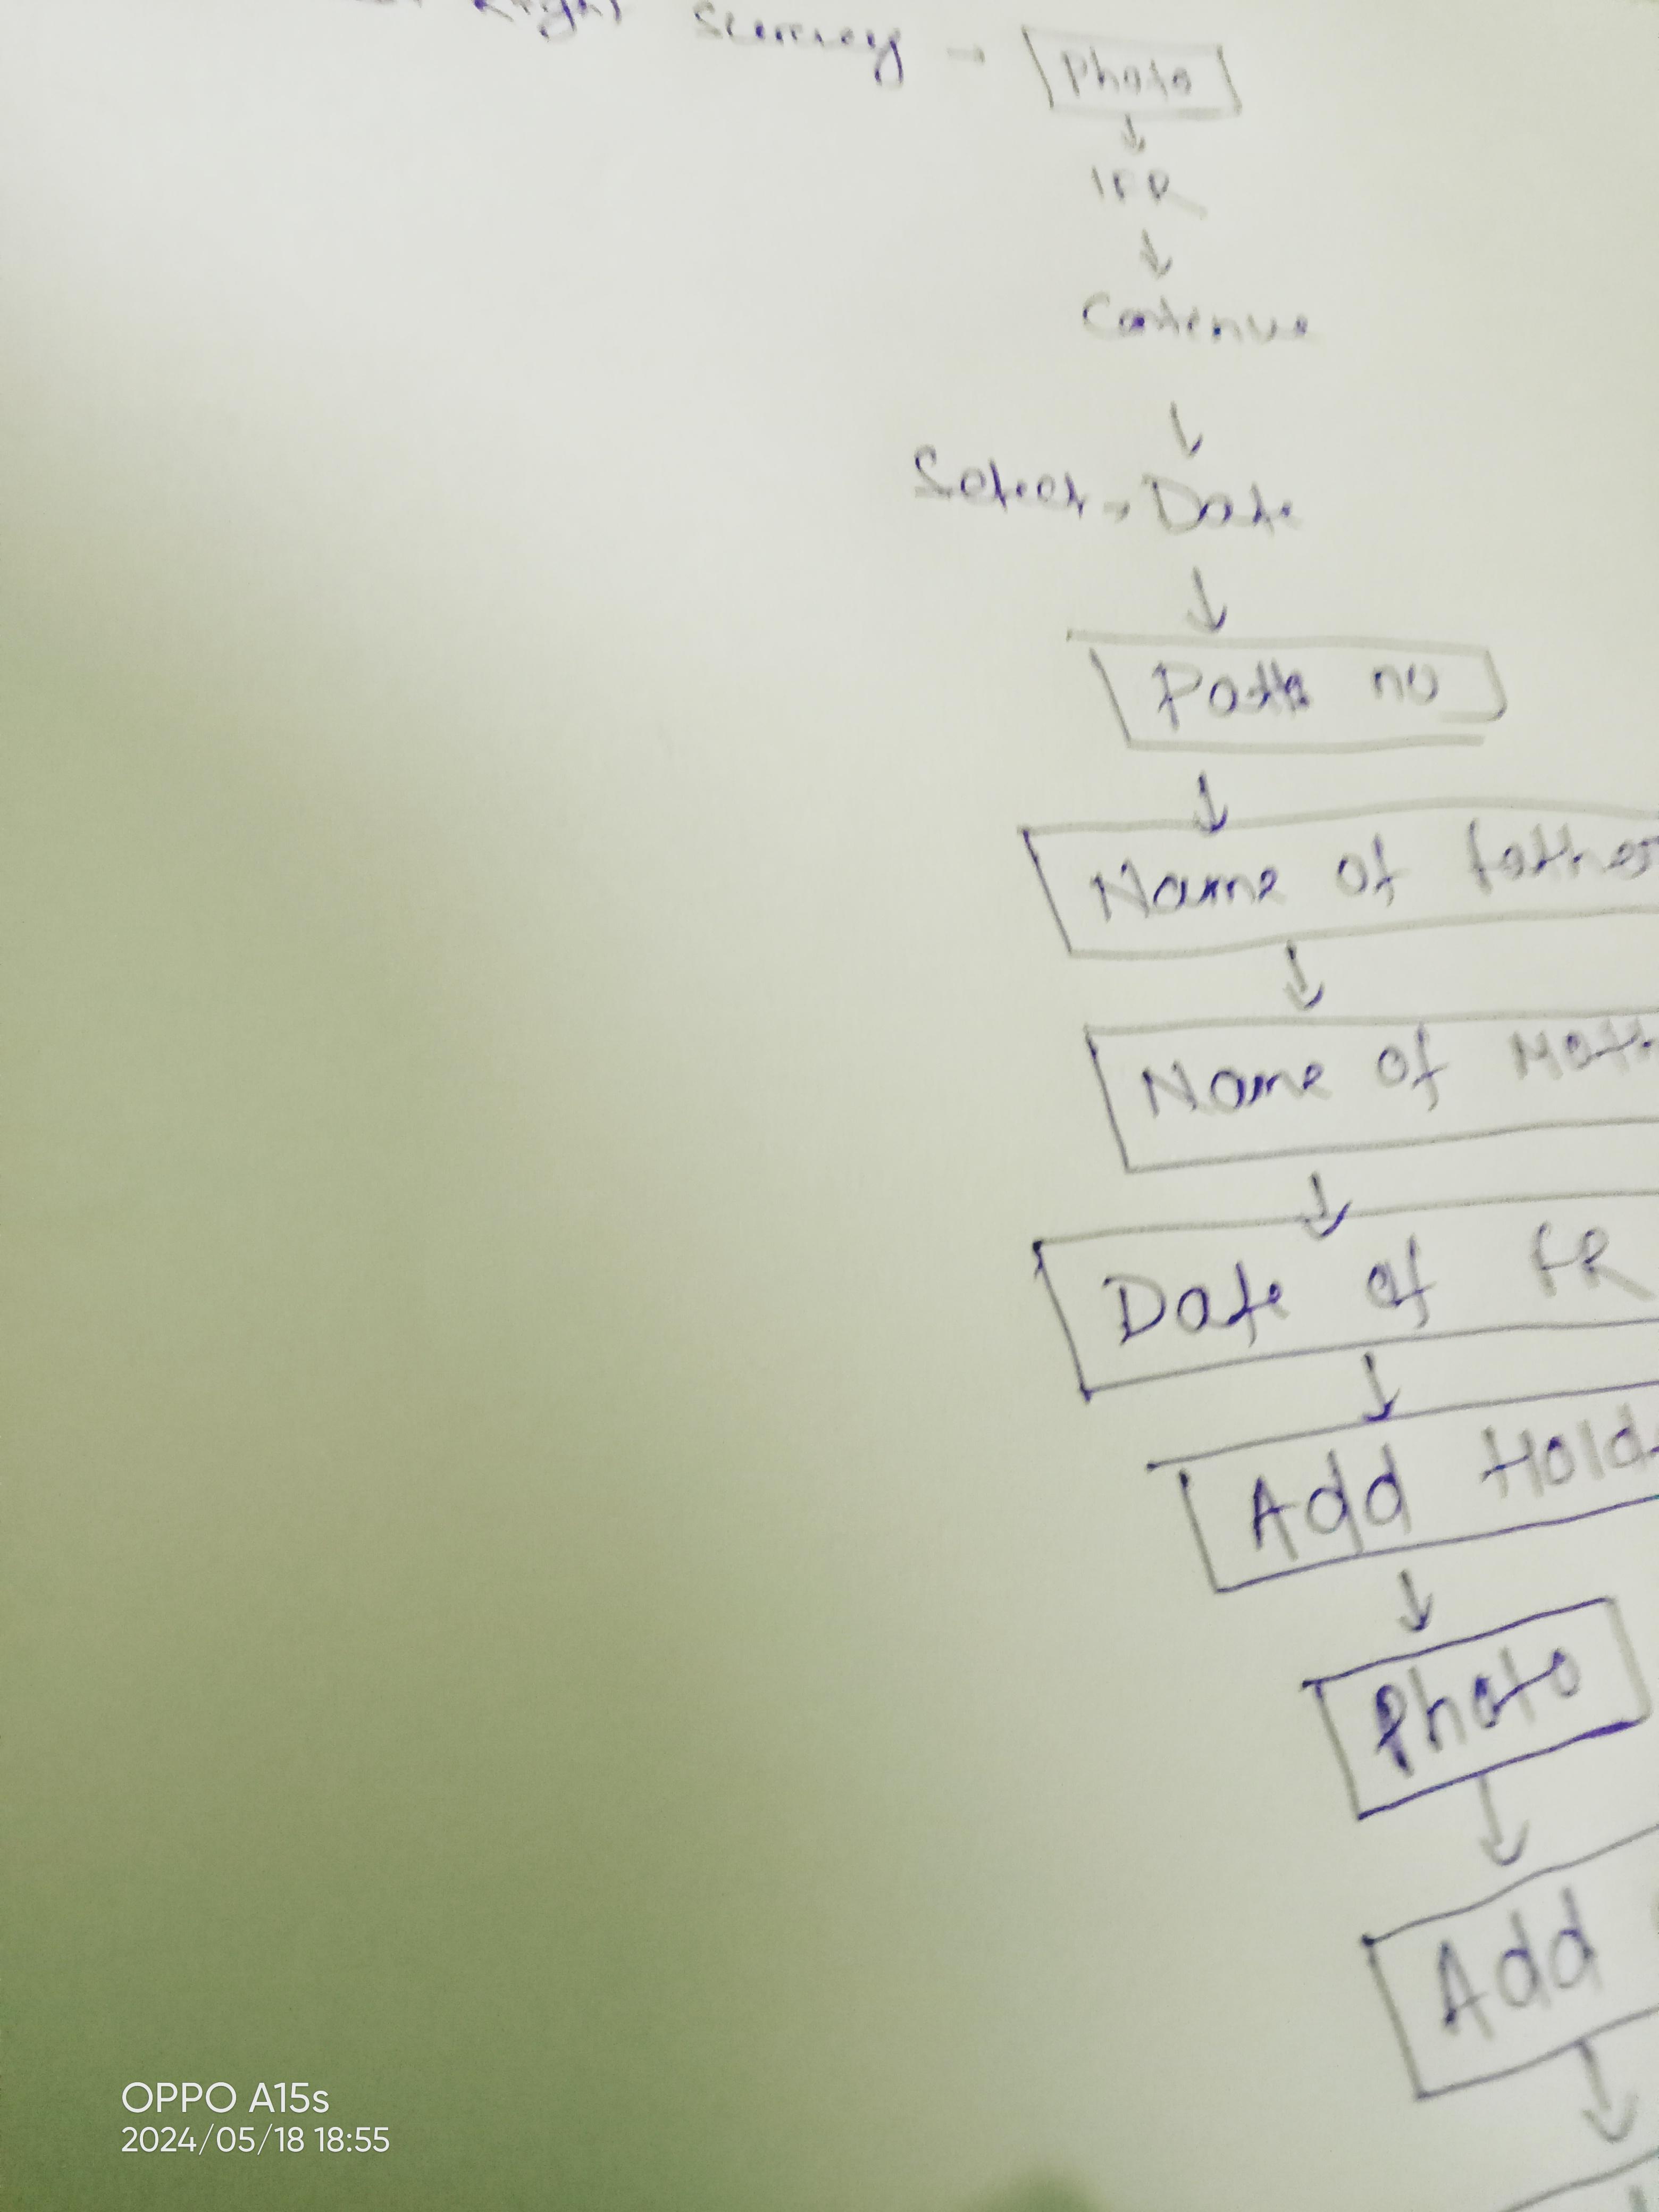 Right Survey → Photo
IFR
Contenue
Select → Date
Patta no
Name of father
Name of Moth
Date of FR
Add Hold
Photo
Add
OPPO A15s
2024/05/18 18:55